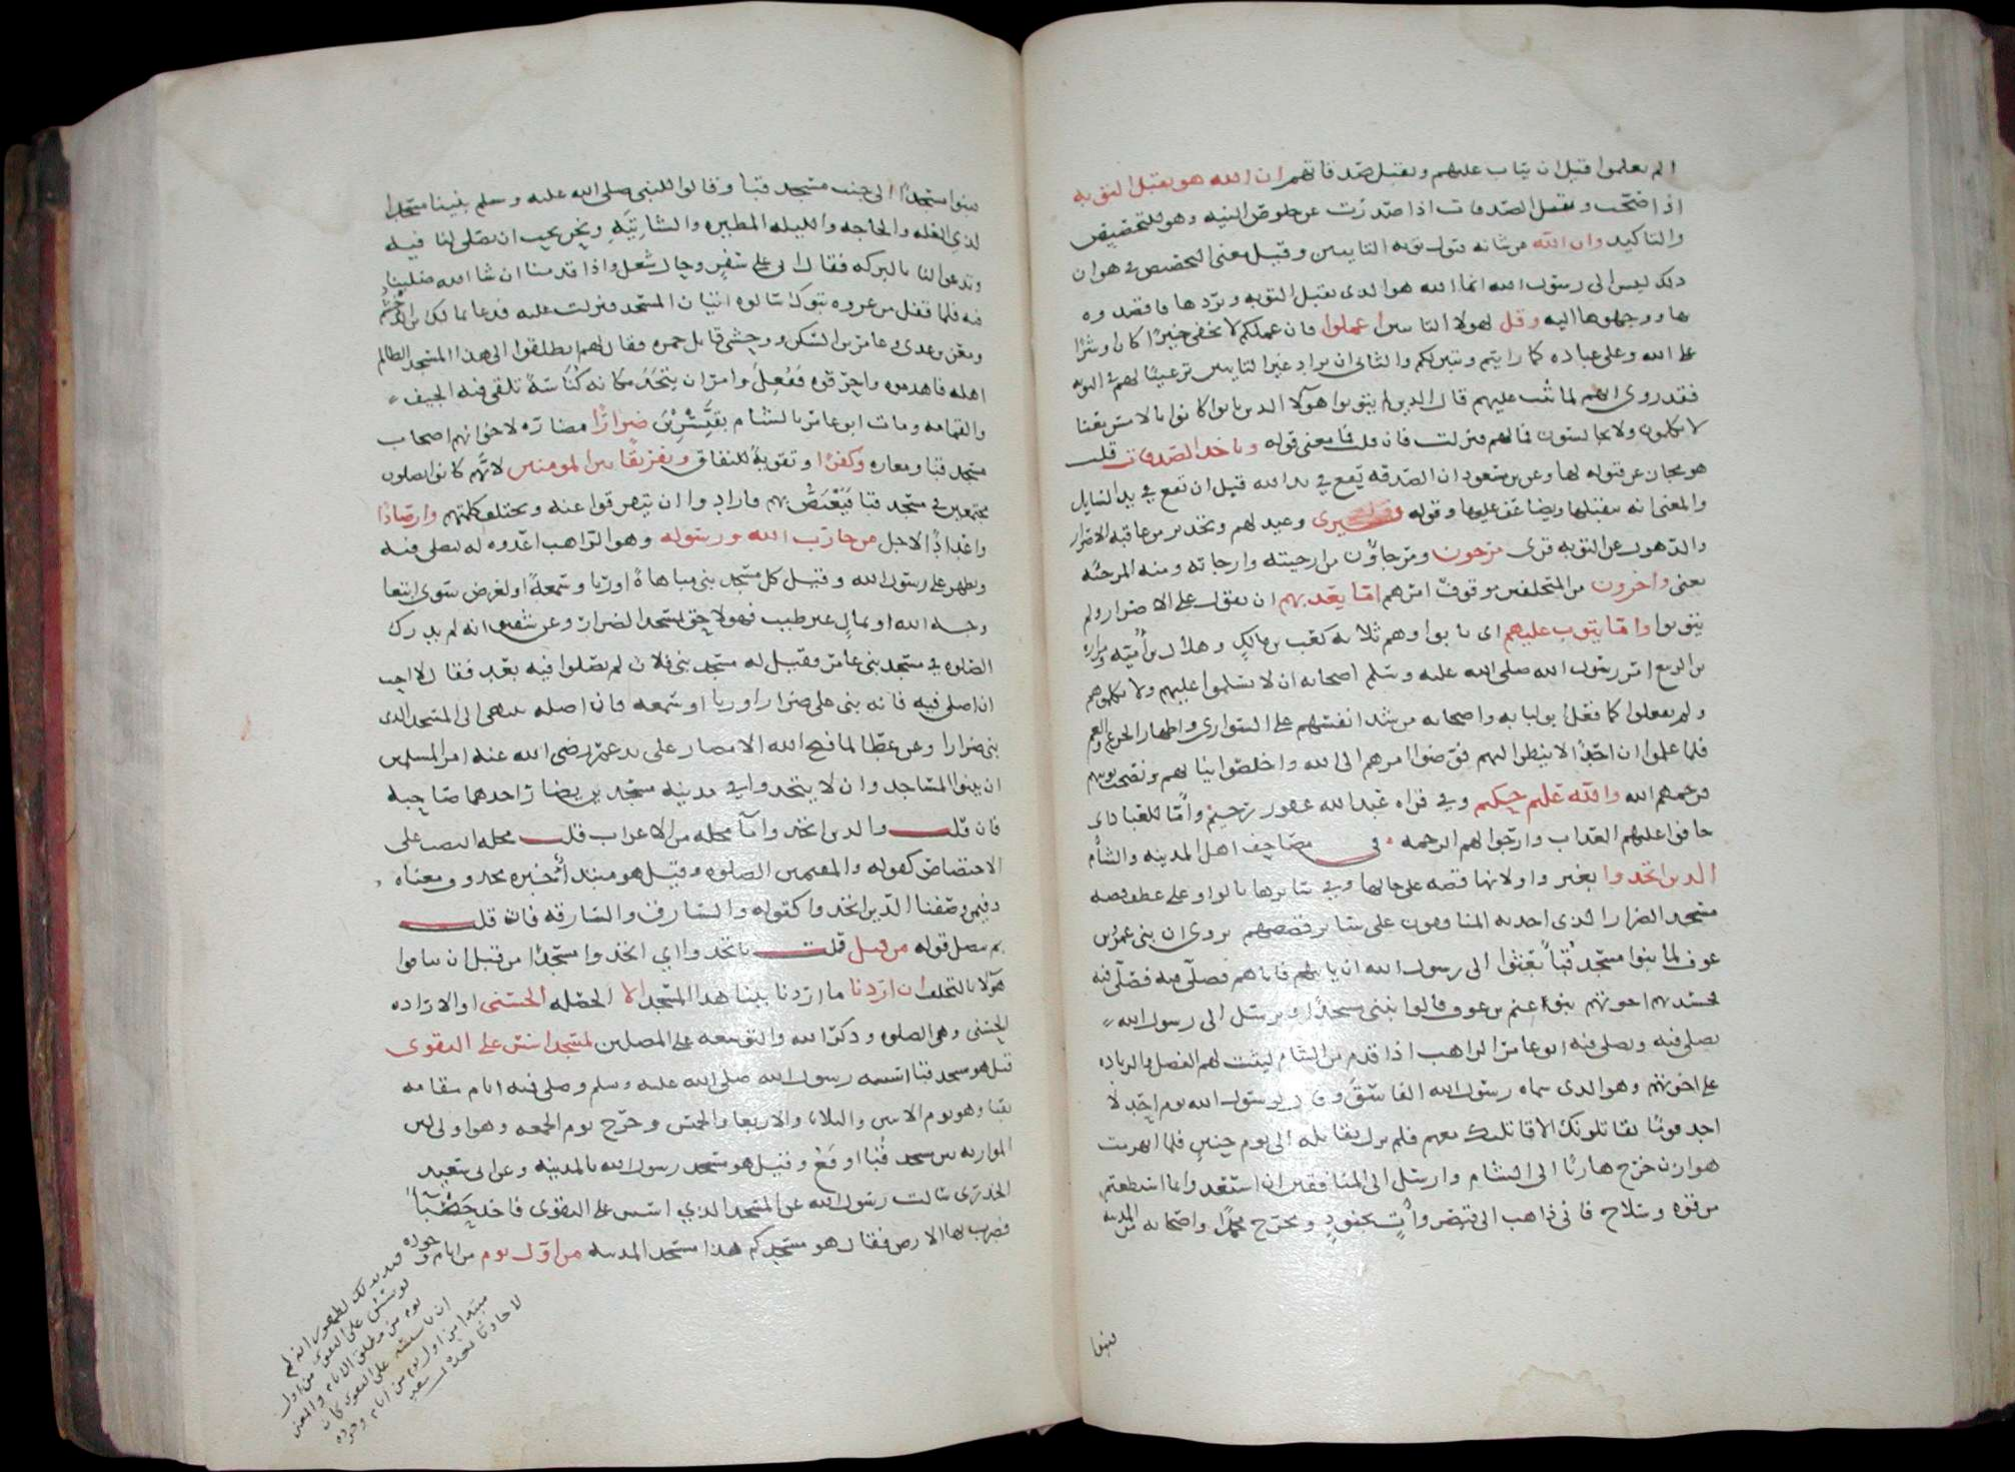 الم يعلموا قبل ان يتاب عليهم وتقبل صدقاتهم ان الله هو يقبل التوبه
اذا صحت ويقبل الصدقات اذا صدرت عن خلوص النيه وهو للتخصيص
والتاكيد وان الله من شانه قبول توبه التايبين وقيل معنى التخصيص في هو ان
ذلك ليس الى رسول الله انما الله هو الذي يقبل التوبه ويردها فاقصدوه
بها ووجهوها اليه وقل لهولا التايبين اعملوا فان عملكم لا يخفى خيرا كان او شرا
على الله وعلى عباده كما رايتم وتبين لكم والثاني ان يراد غير التايبين ترغيبا لهم في التوبه
فقد روي انهم لما تيب عليهم قال الذين لم يتوبوا هولا الذين تابوا كانوا بالامس معنا
لا يكلمون ولا يجالسون فما لهم فنزلت فان قلت فما معنى قوله وياخذ الصدقات قلت
هو مجاز عن قبوله لها وعن بن مسعود ان الصدقه تقع في يد الله قبل ان تقع في يد السايل
والمعنى انه يتقبلها ويضاعف عليها وقوله فسيرى وعيد لهم وتحذير من عاقبه الاصرار
والذهول عن التوبه قرى مرجون ومرجاون من ارجيته وارجاته ومنه المرجئه
يعني واخرون من المتخلفين موقوف امرهم اما يعذبهم ان بقوا على الاصرار ولم
يتوبوا واما يتوب عليهم اي تابوا وهم ثلاثه كعب بن مالك وهلال بن اميه ومراره
بن الربيع امر رسول الله صلى الله عليه وسلم اصحابه ان لا يسلموا عليهم ولا يكلموهم
ولم يفعلوا كما فعل ابو لبابه واصحابه من شد انفسهم على السواري واظهار الجزع والغم
فلما علموا ان احدا لا ينظر اليهم فوضوا امرهم الى الله واخلصوا نياتهم ونصحت توبتهم
فرحمهم الله والله عليم حكيم وفي قراه عبد الله غفور رحيم واما للعباد اي
خافوا عليهم العذاب وارجوا لهم الرحمه في مصاحف اهل المدينه والشام
الذين اتخذوا بغير واو لانها قصه على حالها وفي سايرها بالواو على عطف قصه
مسجد الضرار الذي احدثه المنافقون على ساير قصصهم روي ان بني عمرو بن
عوف لما بنوا مسجد قبا بعثوا الى رسول الله ان ياتيهم فاتاهم فصلى فيه
فحسدتهم اخوتهم بنو غنم بن عوف وقالوا نبني مسجدا ونرسل الى رسول الله
يصلي فيه ويصلي فيه ابو عامر الراهب اذا قدم من الشام ليثبت لهم الفضل والزياده
على اخوتهم وهو الذي سماه رسول الله الفاسق وقال لرسول الله يوم احد لا
اجد قوما يقاتلونك الا قاتلتك معهم فلم يزل يقاتله الى يوم حنين فلما انهزمت
هوازن خرج هاربا الى الشام وارسل الى المنافقين ان استعدوا بما استطعتم
من قوه وسلاح فاني ذاهب الى قيصر وات بجنود ومخرج محمدا واصحابه من المدينه
فبنوا
فبنوا مسجدا الى جنب مسجد قبا وقالوا للنبي صلى الله عليه وسلم بنينا مسجدا
لذي العله والحاجه والليله المطيره والشاتيه ونحن نحب ان تصلي لنا فيه
وتدعو لنا بالبركه فقال اني على سفر وحال شغل واذا قدمنا ان شا الله صلينا
فيه فلما قفل من غزوه تبوك سالوه اتيان المسجد فنزلت عليه فدعا بمالك بن الدخشم
ومعن بن عدي وعامر بن السكن ووحشي قاتل حمزه فقال لهم انطلقوا الى هذا المسجد الظالم
اهله فاهدموه واحرقوه ففعل وامر ان يتخذ مكانه كناسة تلقى فيه الجيف
والقمامه ومات ابو عامر بالشام بقنسرين ضرارا مضاره لاخوانهم اصحاب
مسجد قبا ومعازه وكفرا وتقويه للنفاق وتفريقا بين المومنين لانهم كانوا يصلون
مجتمعين في مسجد قبا فيغتص بهم فارادوا ان يتفرقوا عنه وتختلف كلمتهم وارصادا
واعدادا لاجل من حارب الله ورسوله وهو الراهب اعدوه له ليصلي فيه
ويظهر على رسول الله وقيل كل مسجد بني مباهاة او ريا وسمعة او لغرض سوى ابتغا
وجه الله او بمال غير طيب فهو لاحق بمسجد الضرار وعن شقيق انه لم يدرك
الصلوه في مسجد بني عامر فقيل له مسجد بني فلان لم يصلوا فيه بعد فقال لا احب
ان اصلي فيه فانه بني على ضرار وكل مسجد بني على ضرار او ريا او سمعه فان اصله ينتهي الى المسجد الذي
بني ضرارا وعن عطا لما فتح الله الامصار على يد عمر رضي الله عنه امر المسلمين
ان يبنوا المساجد وان لا يتخذوا في مدينه مسجدين يضار احدهما صاحبه
فان قلت والذين اتخذوا ما محله من الاعراب قلت محله النصب على
الاختصاص كقوله والمقيمين الصلوه وقيل هو مبتدا خبره محذوف ومعناه
وفيمن وصفنا الذين اتخذوا كقوله والسارق والسارقه فان قلت
بم يتصل قوله من قبل قلت باتخذوا اي اتخذوا مسجدا من قبل ان ينافقوا
هولا بالتخلف ان اردنا ما اردنا ببنا هذا المسجد الا الخصله الحسنى او الاراده
الحسنى وهي الصلوه وذكر الله والتوسعه على المصلين لمسجد اسس على التقوى
قيل هو مسجد قبا اسسه رسول الله صلى الله عليه وسلم وصلى فيه ايام مقامه
بقبا وهو يوم الاثنين والثلاثا والاربعا والخميس وخرج يوم الجمعه وهو اولى لان
الموازنه بين مسجد قبا اوقع وقيل هو مسجد رسول الله بالمدينه وعن ابي سعيد
الخدري سالت رسول الله عن المسجد الذي اسس على التقوى فاخذ حصبا
فضرب بها الارض فقال هو مسجدكم هذا مسجد المدينه من اول يوم من ايام وجوده
لم يوسس على التقوى من اول
يوم من مطلق الايام والمعنى
ان تاسيسه على التقوى كان
مبتدا من اول يوم من ايام وجوده